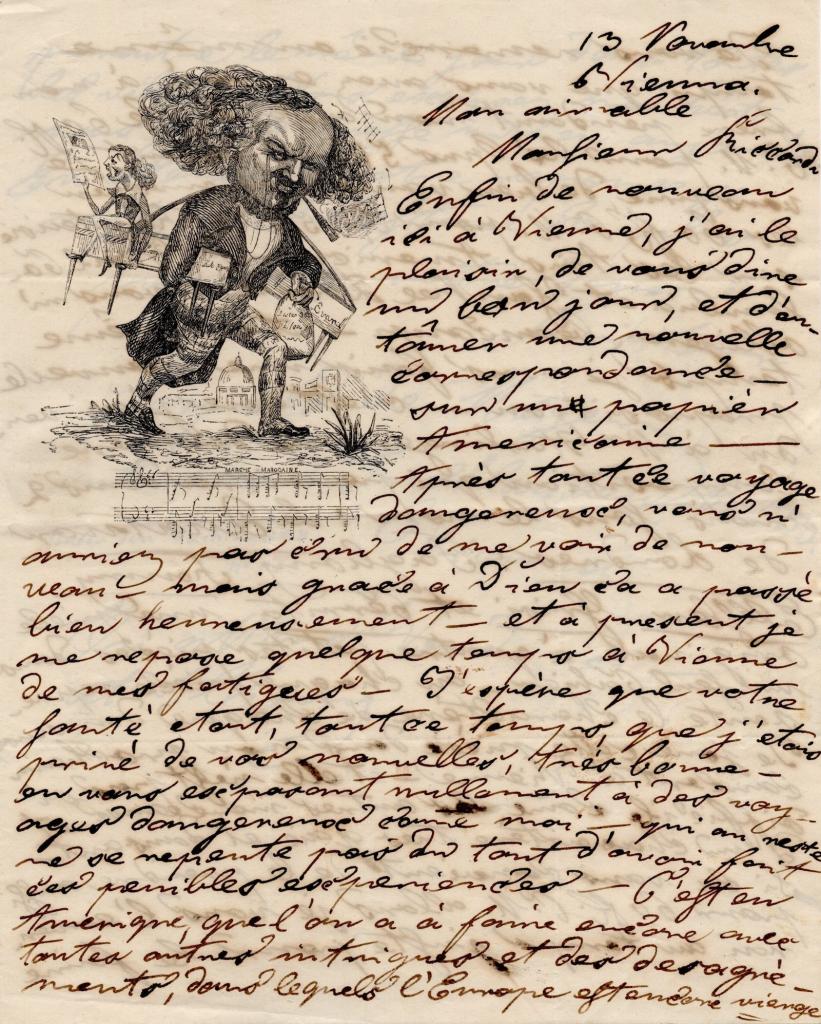 13 Novembre
Vienna.
Mon aimable
Monsieur Riccardi
Enfin de nouveau
ici à Vienne, j'ai le
plaisir, de vous dire
un bon jour, et d'en-
tâmer une nouvelle
correspondance —
sur un papièr
Americaine —
MARCHE MAROCAINE.
Après tant ce voyage
dangereuse, vous n'
auriez pas crû de me voir de nou-
veau — mais gracê à Dieu ca a passé
bien heureusement — et à present je
me repose quelque temps à Vienne
de mes fatigues — J'espère que votre
santé etait, tout ce temps, que j'etais
privé de vos nouvelles, trés bonne —
en vous exposant nullament à des voy-
ages dangereuse come moi — qui au reste
ne se repente pas du tout d'avoir fait
ces penibles experiences — C'est en
Amerique, que l'on a à faire encore avec
toutes autres intrigues et des desagrè-
ments, dans lequels l'Europe est encore vierge